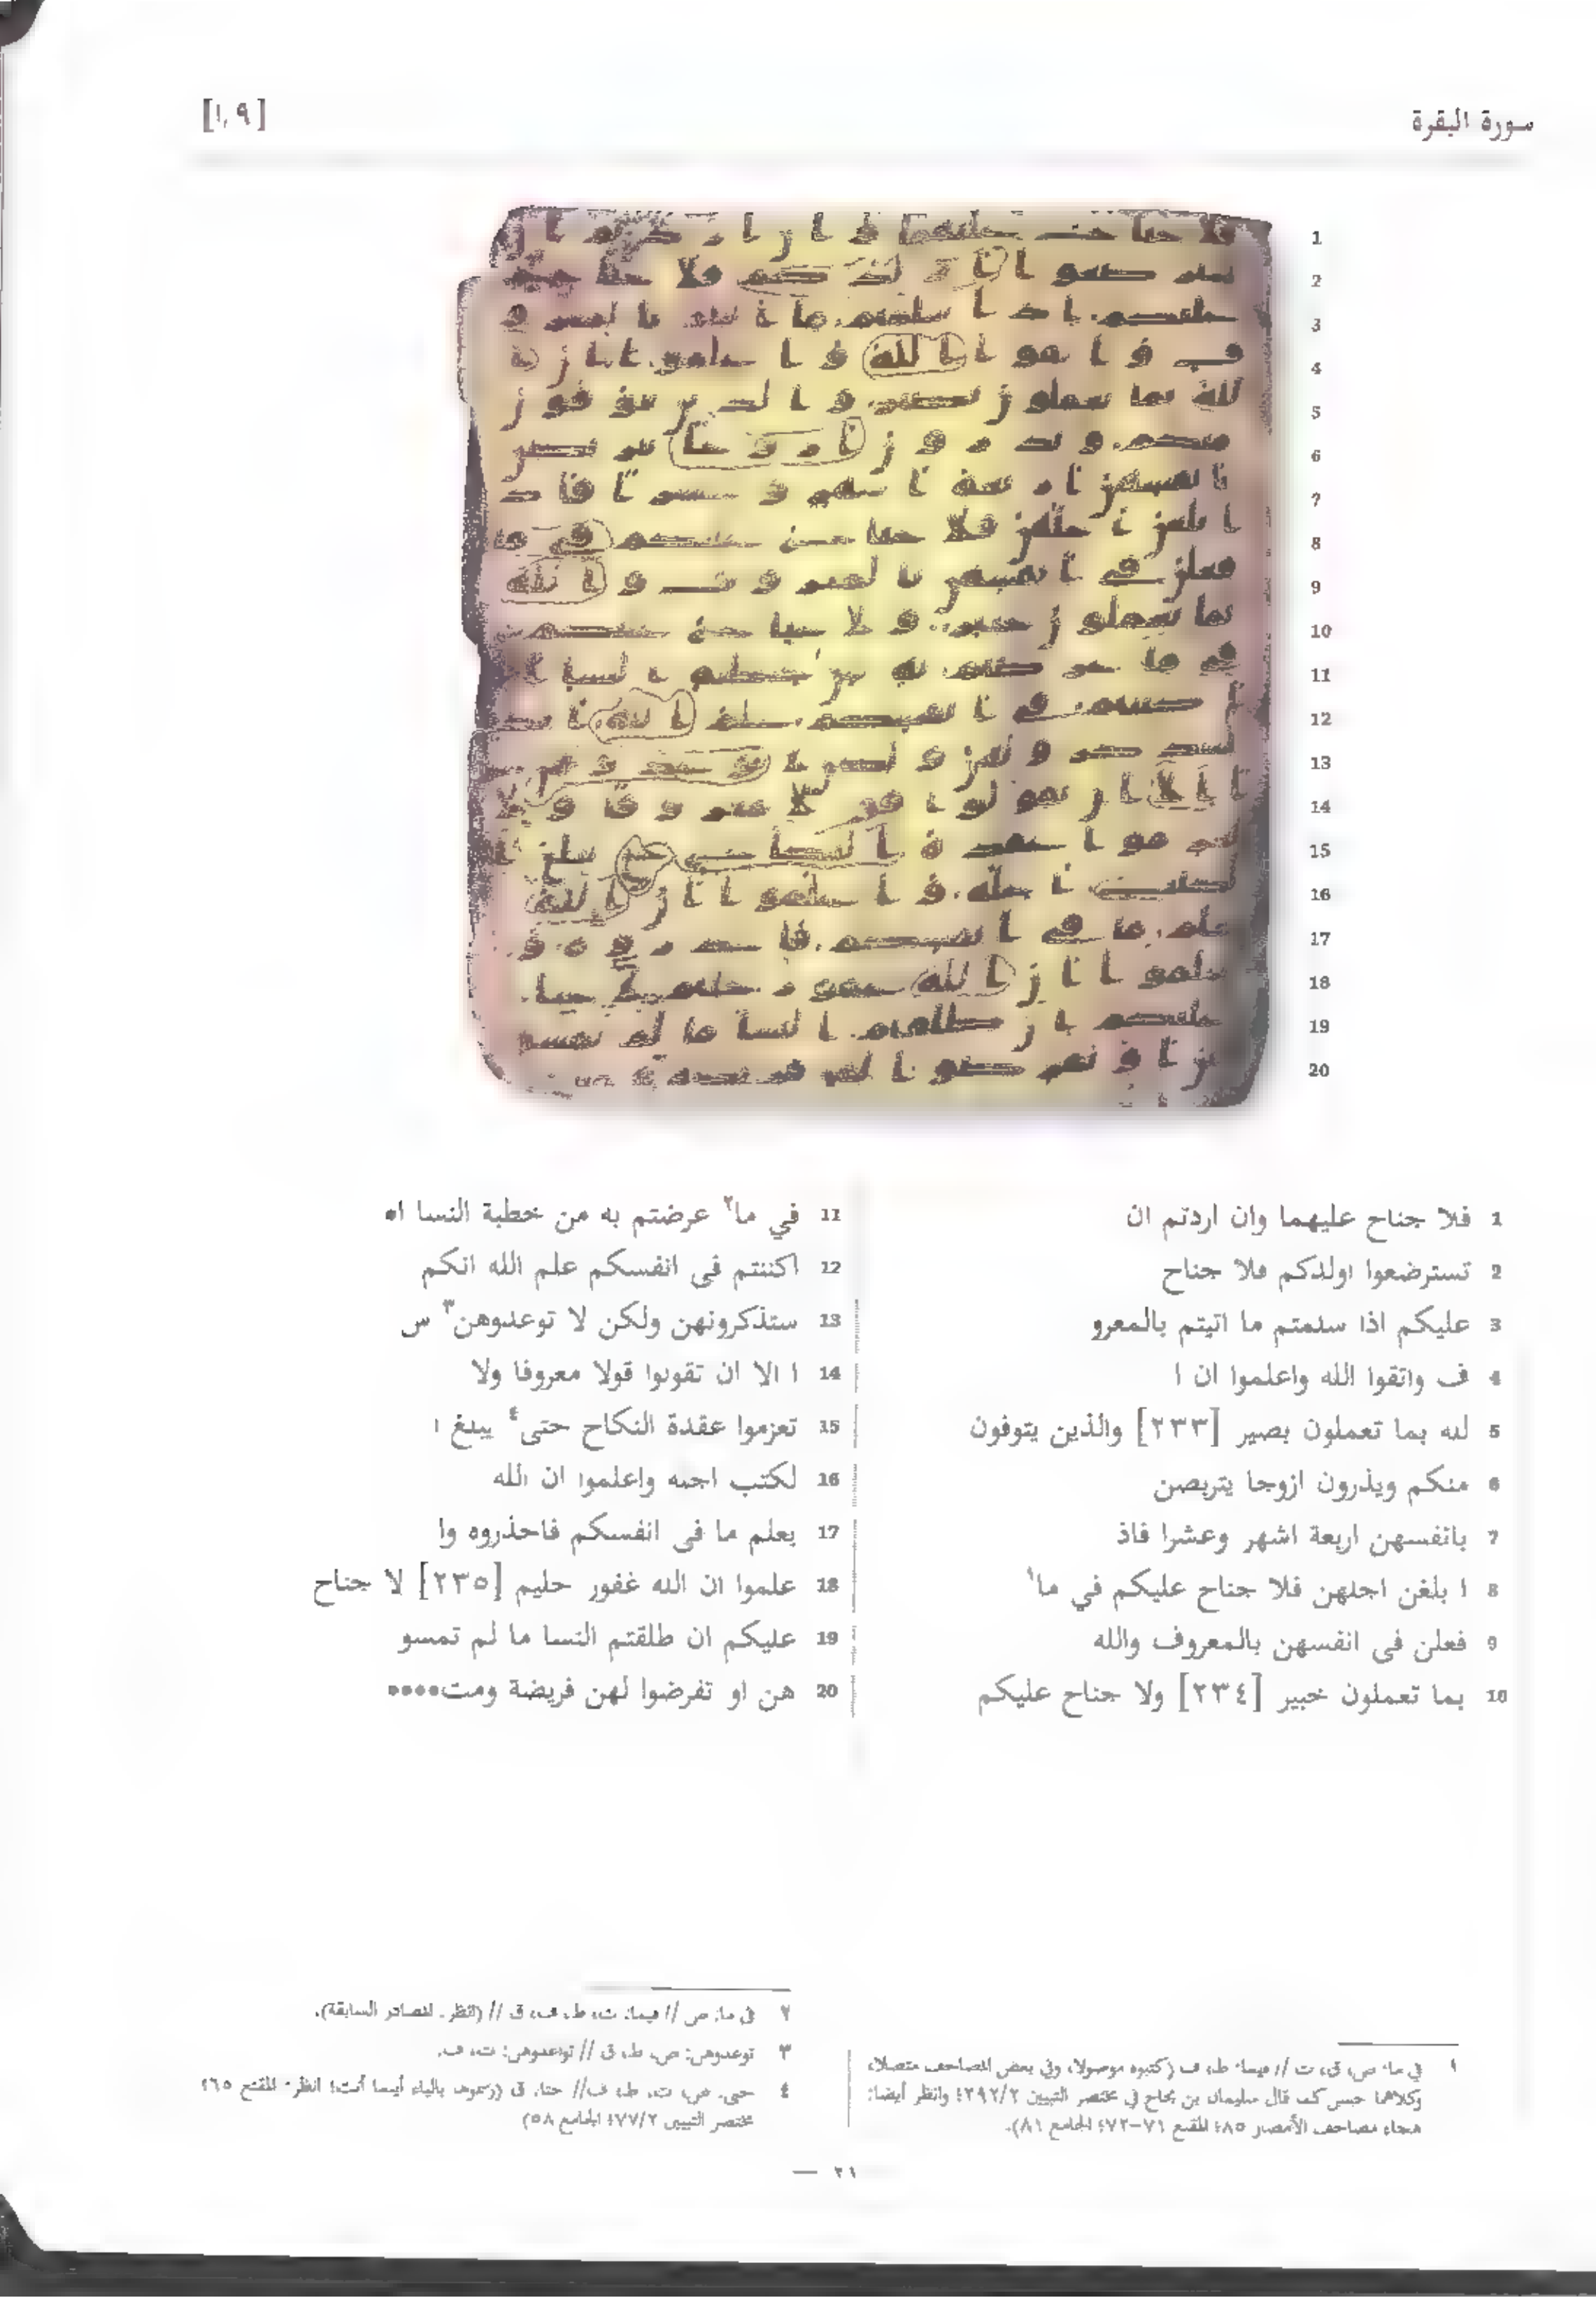 سورة البقرة
[١,٩]
1 فلا جناح عليهما وان اردتم ان
2 تسترضعوا اولدكم فلا جناح
3 عليكم اذا سلمتم ما اتيتم بالمعرو
4 ف واتقوا الله واعلموا ان ا
5 لله بما تعملون بصير [٢٣٣] والذين يتوفون
6 منكم ويذرون ازوجا يتربصن
7 بانفسهن اربعة اشهر وعشرا فاذ
8 ا بلغن اجلهن فلا جناح عليكم في ما١
9 فعلن فى انفسهن بالمعروف والله
10 بما تعملون خبير [٢٣٤] ولا جناح عليكم
11 في ما٢ عرضتم به من خطبة النسا او
12 اكننتم فى انفسكم علم الله انكم
13 ستذكرونهن ولكن لا توعدوهن٣ س
14 ا الا ان تقولوا قولا معروفا ولا
15 تعزموا عقدة النكاح حتى٤ يبلغ ا
16 لكتب اجله واعلموا ان الله
17 يعلم ما فى انفسكم فاحذروه وا
18 علموا ان الله غفور حليم [٢٣٥] لا جناح
19 عليكم ان طلقتم النسا ما لم تمسو
20 هن او تفرضوا لهن فريضة ومت••••
١ في ما: ص، ق، ت // فيما: ط، ف (كتبوه موصولا، وفي بعض المصاحف متصلا،
وكلاهما حسن كما قال سليمان بن نجاح في مختصر التبيين ٢/٢٩٢؛ وانظر أيضا:
هجاء مصاحف الأمصار ٨٥؛ المقنع ٧١-٧٢؛ الجامع ٨١).
٢ في ما: ص // فيما: ت، ط، ف، ق // (انظر: المصادر السابقة).
٣ توعدوهن: ص، ط، ق // تواعدوهن: ت، ف.
٤ حتى: ص، ت، ط، ف // حتا: ق ((رسموه بالياء أينما أتت؛ انظر: المقنع ٦٥؛
مختصر التبيين ٢/٧٧؛ الجامع ٥٨)
— ٢١